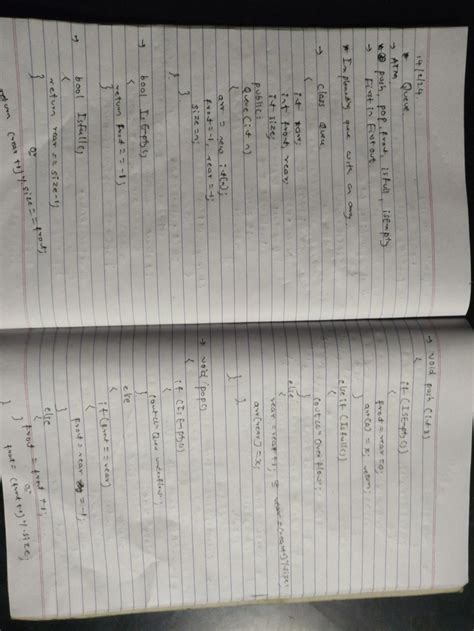 14/2/24
* Queue
→ ATM
→ First in First out.
* push, pop, front, isfull, isEmpty
* queue with an array
→ Class Queue
{
int *arr;
int front, rear;
int size;
public:
Queue (int n)
{
arr = new int[n];
front = -1, rear = -1;
size = n;
}
→ bool IsEmpty()
{
return front == -1;
}
→ bool Isfull()
{
return rear == size-1;
}
or
return (rear+1) % size == front;
→ void push (int x)
{
if (IsEmpty())
{
front = rear = 0;
arr[0] = x; return;
}
else if (Isfull())
{
cout<< "Overflow";
}
else
{
rear = rear + 1; = rear = (rear+1) % size;
arr[rear] = x;
}
}
→ void pop()
{
if (IsEmpty())
{
cout<< Queue underflow;
}
else
{
if (front == rear)
{
front = rear = -1;
}
else
{
front = front + 1;
}
or
front = (front+1) % size;